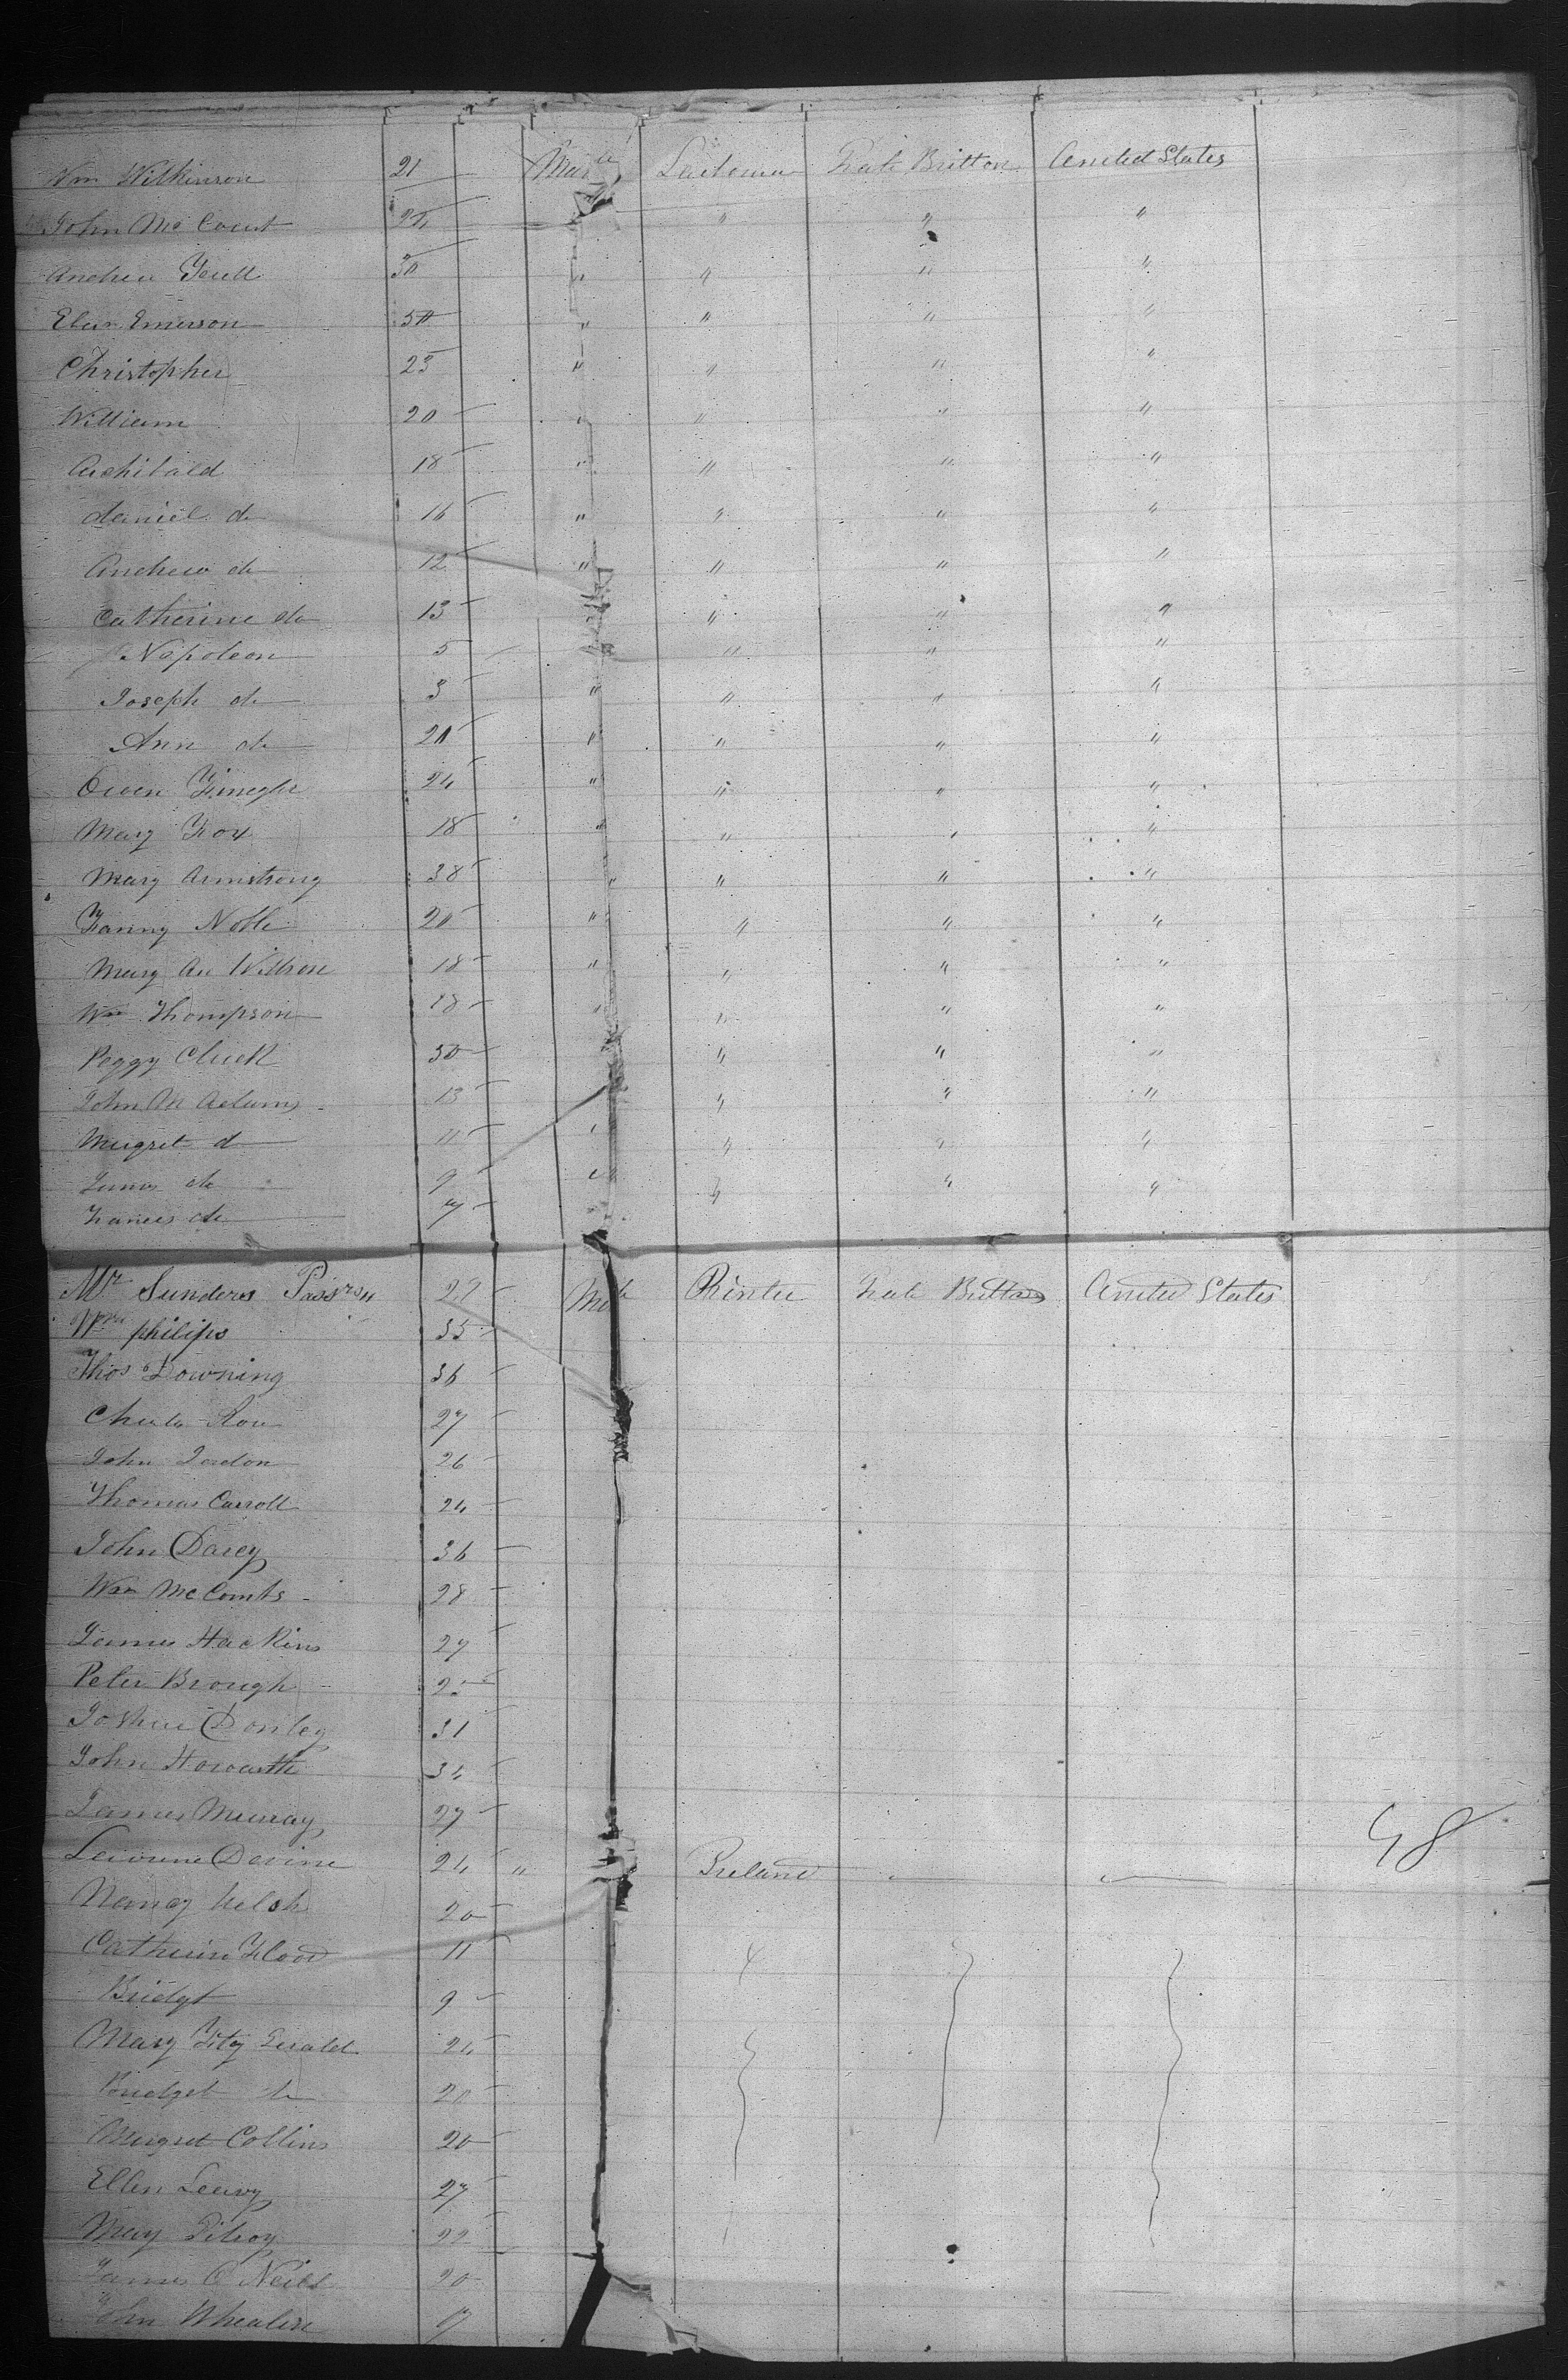 Wm Wilkinson 21 Male Great Britton United States
John Mc Court 24 " " "
Andrew 30 " " " "
Emerson 50 " " " "
Christopher 25 " " " "
William 20 " " " "
Archibald 18 " " " "
daniel do 16 " " " "
Andrew do 12 " " " "
Catherine do 13 " " "
Napoleon 5 " " "
Joseph do 3 " " " "
Ann do 20 " " " "
Owen 24 " " " "
Mary Fox 18 " " " "
Mary Armstrong 38 " " " "
Fanny Noble 20 " " " "
Mary An Willson 18 " " " "
Wm Thompson 18 " " " "
Peggy 30 " " "
John M Adams 13 " " "
Margret d 11 " " " "
James do 9 " " " "
Frances do 7
Mr Sunders Passrs 27 Male Great Britton United States
Wm philips 35
Thos Downing 36
27
John 26
Thomas Carroll 24
John Darcy 36
Wm McCombs 28
James Hackins 27
Peter Brough 25
Donley 31
John Howarth 34
James Murray 27
48
Devine 24 " Ireland
Nancy Welsh 20
Catherin Flood 11
Bridgt 9
Mary Fitz Gerald 24
Bridget do 20
Margret Collins 20
Ellen Leavy 27
Mary Gilroy 22
James O Neill 20
John Whealen